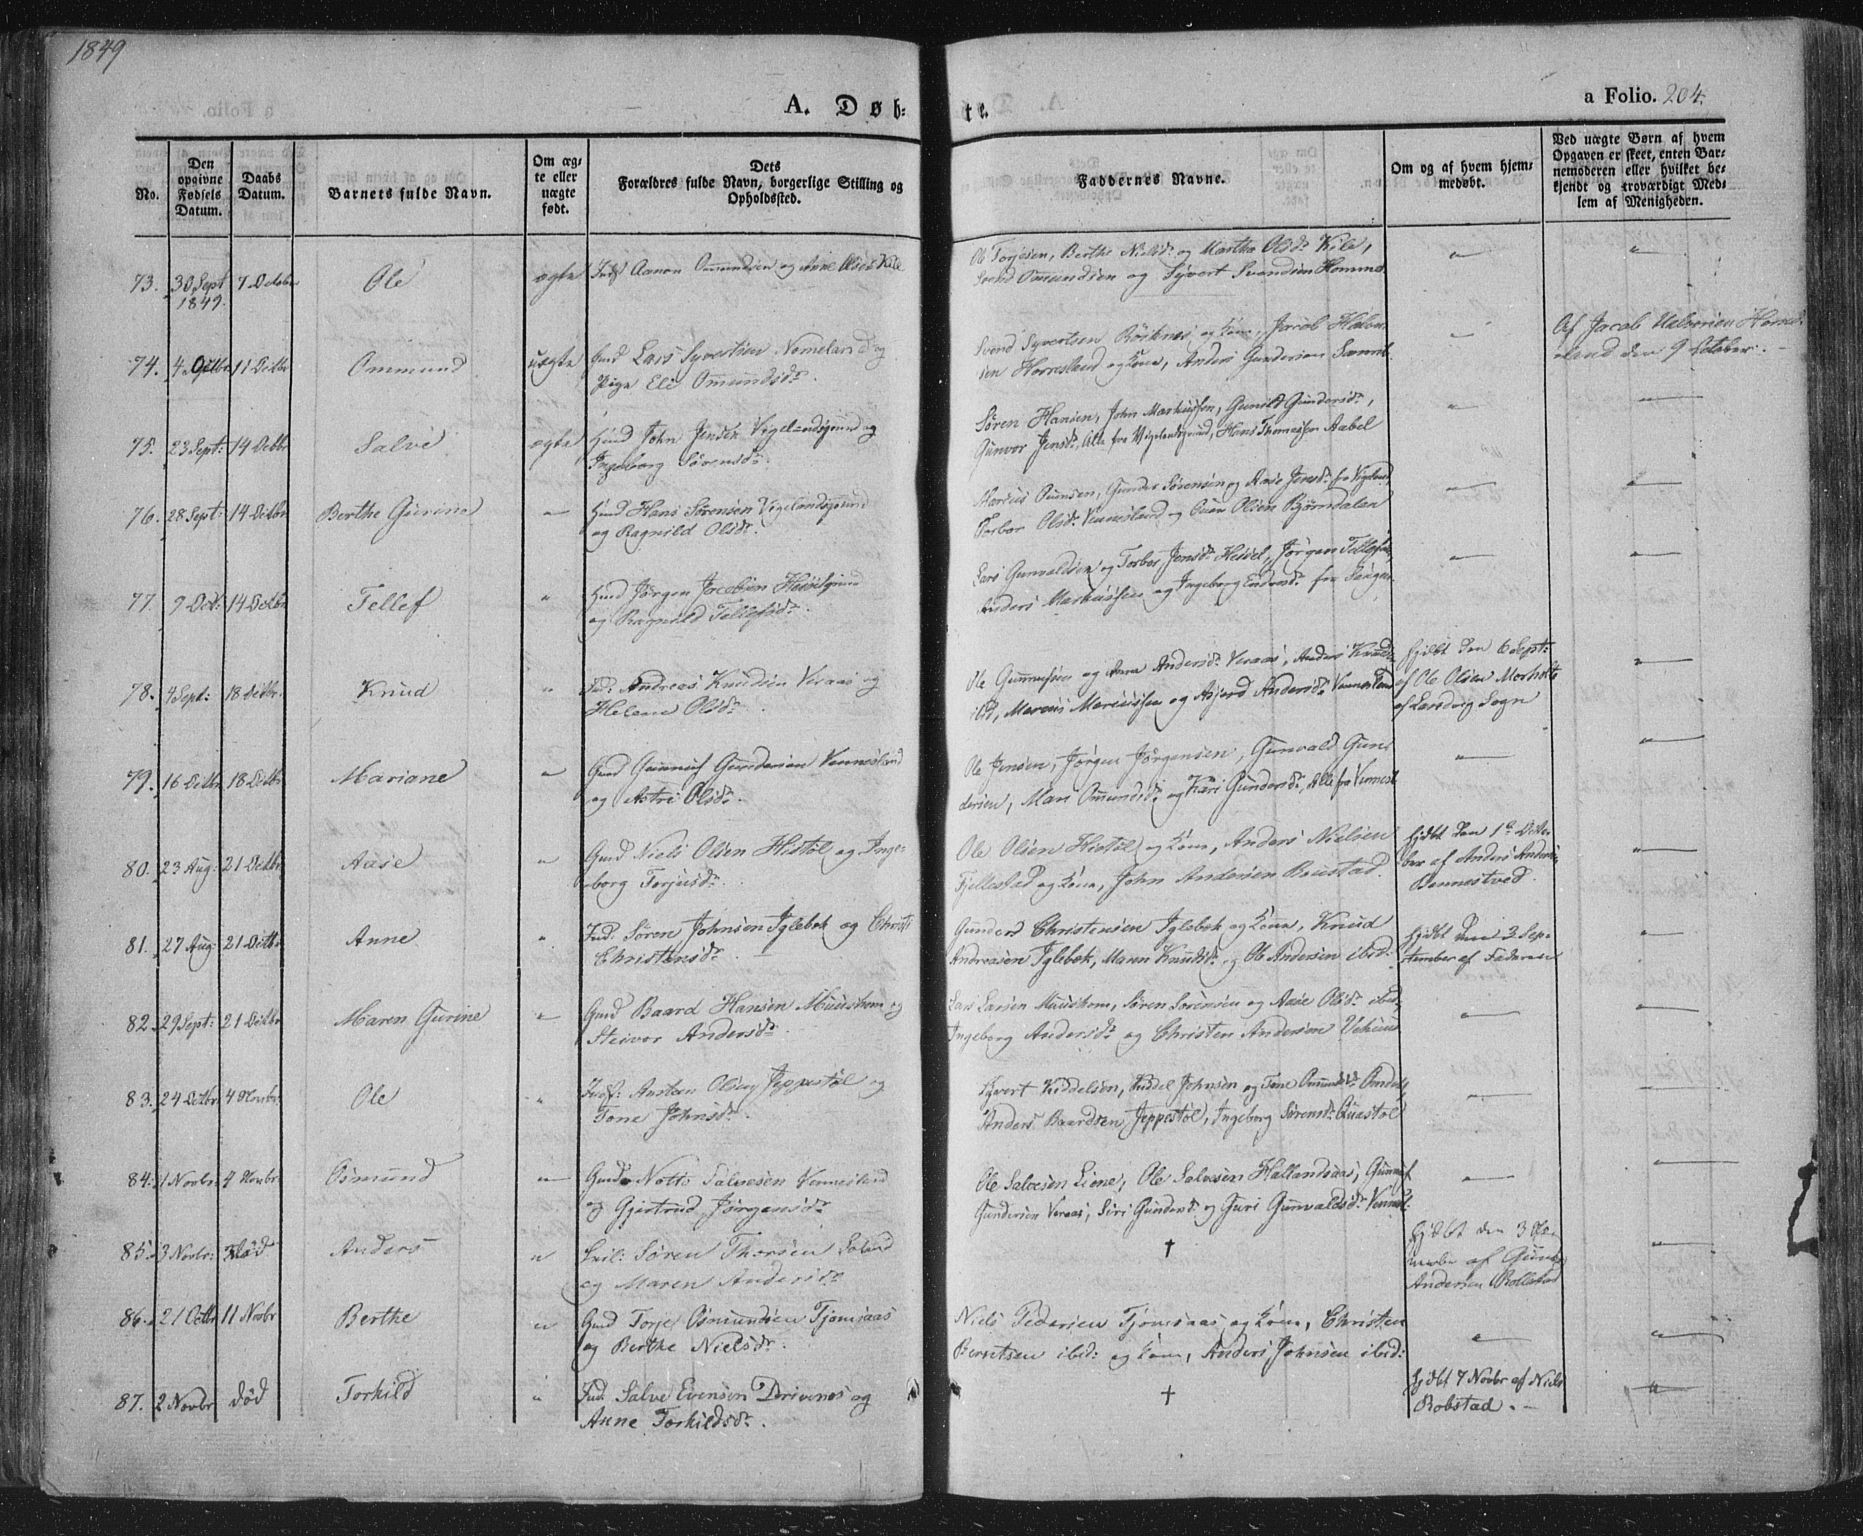 1849
A. Døb-
te.
a Folio. 204.
No.
Den opgivne Fødsels Datum.
Daabs Datum.
Barnets fulde Navn.
Om ægte eller uægte født.
Dets Forældres fulde Navn, borgerlige Stilling og Opholdssted.
Faddernes Navne.
Om og af hvem hjemmedøbt.
Ved uægte Børn af hvem Opgaven er skeet, enten Barnemoderen eller hvilket bekjendt og troværdigt Medlem af Menigheden.
73. 30 Sept 1849. 7 October Ole ægte Inds Aanon Ommundsen og Anne Olsd. Kile
Ole Torjesen, Berthe Nielsd. og Marthe Olsd. Kile,
Svend Ommundsen og Syvert Svendsen Homme
74. 4 Octbr 11 Octbr Ommund uægte Gmd Lars Syvertsen Nomeland og
Pige Eli Omundsd.
Svend Syvertsen Røsknes og Kone, Jacob Halvor-
sen Horresland og Kone, Anders Gundersen
Af Jacob Halvorsen Horres-
land den 9 October.
75. 23 Sept: 14 Octbr Salve ægte Hmd John Jensen Vigelandsgrund og
Ingeborg Sørensd.
Søren Hansen, John Markussen, Gunild Gundersd.,
Gunvor Jensd. Alle fra Vigelandsgrund, Hans Thomassen Aabel
76. 28 Sept: 14 Octbr Berthe Gurine Hmd Hans Sørensen Vigelandsgrund
og Ragnild Olsd.
Gunder Sørensen og Aase Jensd. fra Vigeland
Torbor Olsd. Vennesland og Olsen Bjørndalen
77. 9 Oct: 14 Octbr Tellef " Hmd Jørgen Jacobsen
og Ragnild Tellefsd.
Lars Gunvaldsen og Torbor Jensd. Heisel, Jørgen Tellefsen,
Anders Markussen og Ingeborg fra
78. 4 Sept: 18 Octbr. Knud " Ind: Andreas Knudsen Veraas og
Helene Olsd.
Ole Gunnufsen og Anne Andersd. Veraas, Anders Knuds.
ibid, Marcus Marcussen og Asjerd Andersd. Vennesland
hjdbt den 6 Sept:
af Ole Olsen Morholt
af Sogn
79. 16 Octbr 18 Octbr Mariane Gmd Gunnuf Gundersen Vennesland
og Astri Olsd.
Ole Jensen, Jørgen Jørgensen, Gunvald Gun-
dersen, Mari Omundsd. og Kari Gundersd. Alle fra Vennesl.
80. 23 Aug: 21 Octbr Aase Gmd Niels Olsen Histøl og Inge-
borg Torjusd.
Ole Olsen Histøl og Kone, Anders Nielsen
Fjellestad og Kone, John Andersen
hjdbt den 1 Octo-
ber af Anders Anders.
Bennestved.
81. 27 Aug: 21 Octbr Anne " Ind: Søren Johnsen Iglebek og
Christensd.
Gunder Christensen Iglebek og Kone, Knud
Andreasen Iglebek, Maren Knudsd. og Ole Andersen ibid
hjdbt den 3 Sep-
tember af Faderen
82. 29 Sept: 21 Octbr Maren Gurine Gmd Baard Hansen Muushom og
Steivor Andersd.
Lars Larsen Muushom, Søren Sørensen og Aase Olsd. ibid,
Ingeborg Andersd. og Christen Andersen Vehuus
83. 24 Octbr. 4 Novbr. Ole " Indf: Austen Olsen Jeppestøl og
Tone Johnsd.
Syvert Kiddelsen, Kiddel Johnsen og Tone Omundsd.
Anders Baardsen Jeppestøl, Ingeborg Sørensd. Quastøl
84. 1 Novbr: 4 Novbr: Osmund Gmd Notto Salvesen Vennesland
og Gjertrud Jørgensd.
Ole Salvesen Liene, Ole Salvesen Hallandsaas, Gunnuf
Gundersen Veraas, Siri Gundersd. og Guri Gunvaldsd. Vennesl.
85. 3 Novbr: død Anders " Søren Thorsen
og Maren Andersd.
†
hjdbt den 3
af Gunder
Andersen
86. 21 Octbr 11 Novbr Berthe Gmd Torje Osmundsen Tjomsaas
og Berthe Nielsd.
Niels Pedersen Tjomsaas og Kone, Christen
Berntsen ibid: og Kone, Anders Johnsen ibid:
87. 2 Novbr død Torkild " Ind Salve Evensen Drivenes og
Anne Torkildsd.
†
hjdbt 7 Novbr af Niels
Robstad.